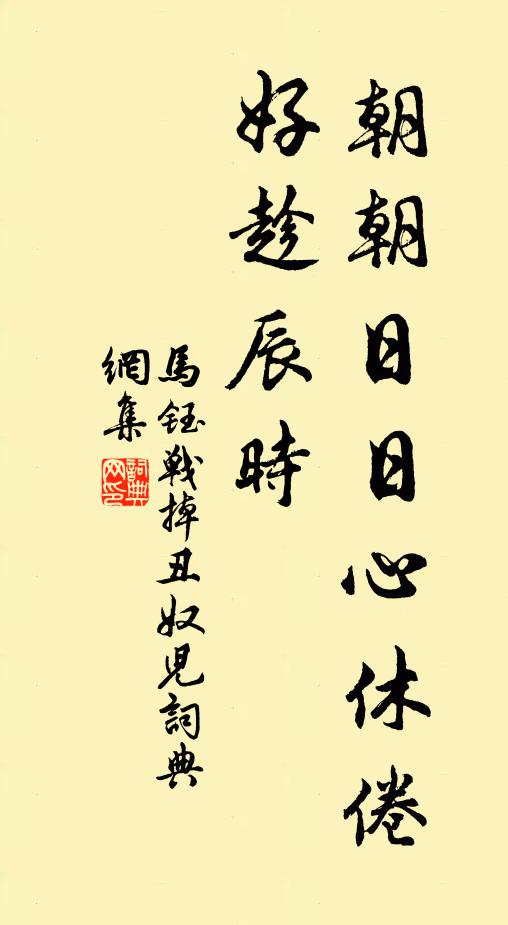 朝朝日日心休倦
好趁辰時
馬鈺戰掉丑奴兒詞典
網集
詞典網印